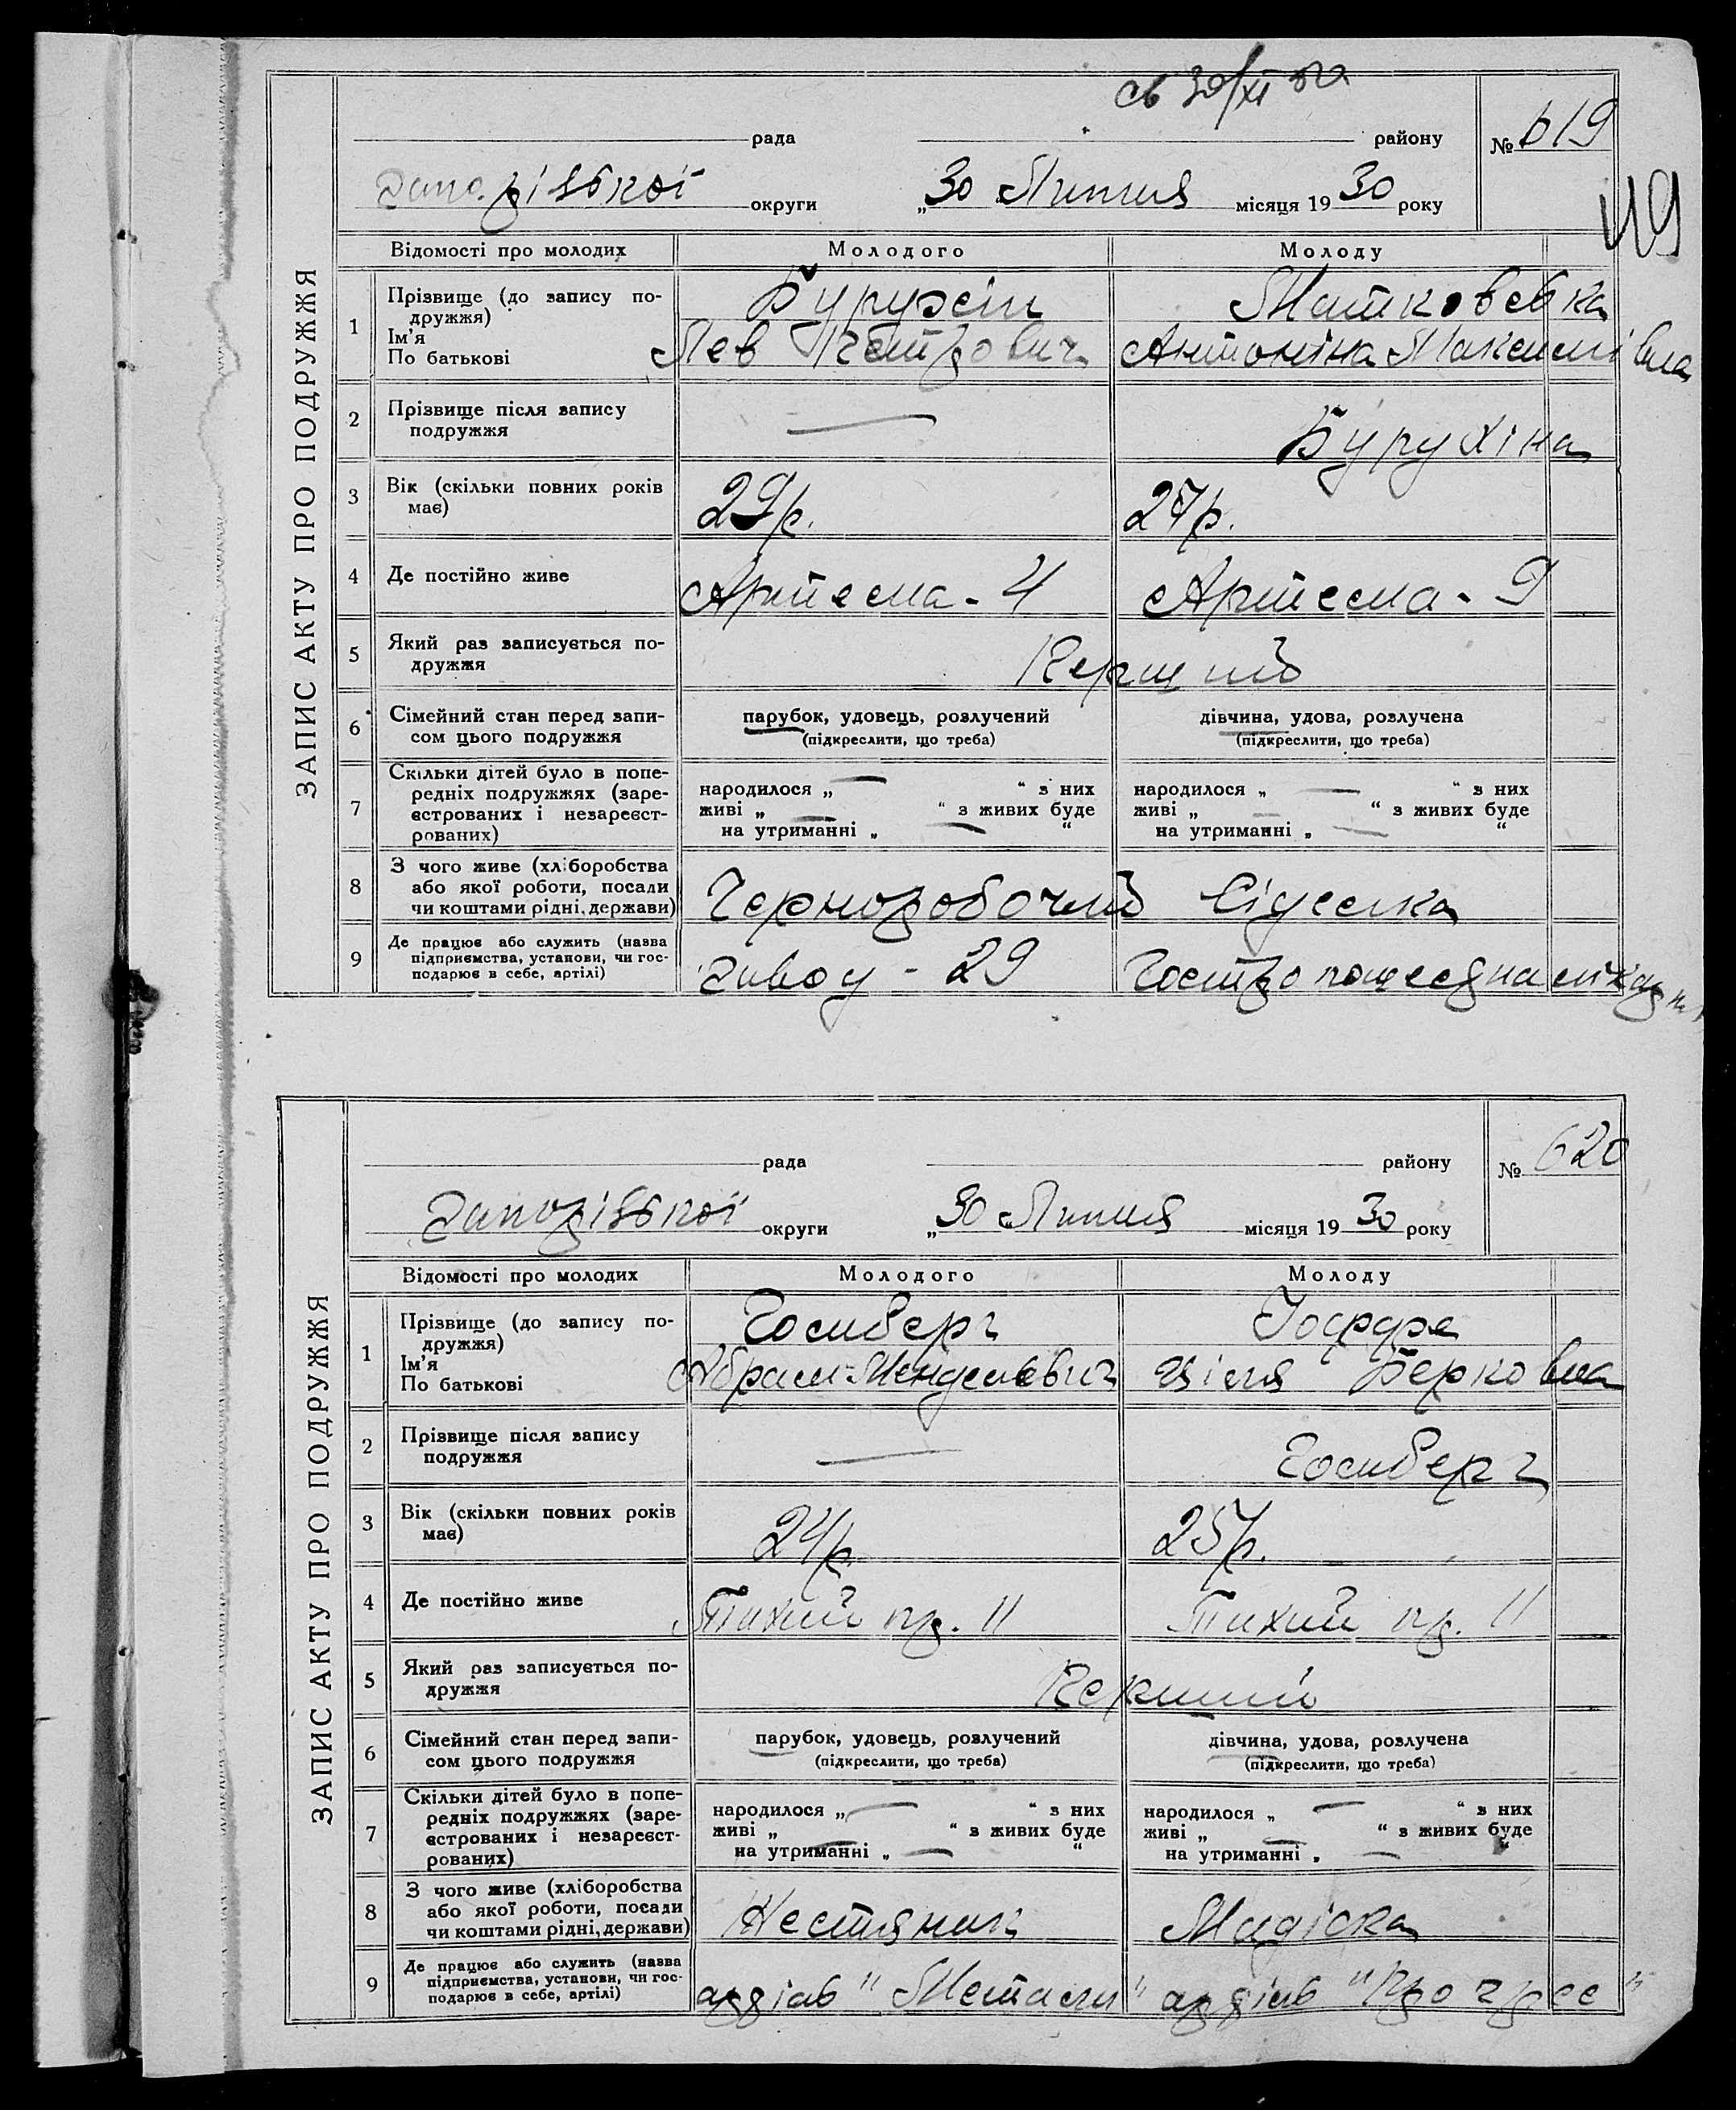 30/XI
рада району № 619
округи „30 Липня місяця 1930 року
49
ЗАПИС АКТУ ПРО ПОДРУЖЖЯ
Відомості про молодих Молодого Молоду
1 Прізвище (до запису по-
дружжя)
Ім’я
По батькові
Бурухін Матковська
Лев Петрович Антоніна Максимівна
2 Прізвище після запису
подружжя
— Бурухіна
3 Вік (скільки повних років
має)
29 р. 27 р.
4 Де постійно живе Артема - 4 Артема - 9
5 Який раз записується по-
дружжя
Перший
6 Сімейний стан перед запи-
сом цього подружжя
парубок, удовець, розлучений дівчина, удова, розлучена
(підкреслити, що треба) (підкреслити, що треба)
7 Скільки дітей було в попе-
редніх подружжях (заре-
єстрованих і незареєст-
рованих)
народилося „ — “ з них народилося „ — “ з них
живі „ — “ з живих буде живі „ — “ з живих буде
на утриманні „ — “ на утриманні „ — “
8 З чого живе (хліборобства
або якої роботи, посади
чи коштами рідні, держави)
Чернозобочий Сідєлка
9 Де працює або служить (назва
підприємства, установи, чи гос-
подарює в себе, артілі)
завод - 29
рада району № 620
округи „30 Липня місяця 1930 року
ЗАПИС АКТУ ПРО ПОДРУЖЖЯ
Відомості про молодих Молодого Молоду
1 Прізвище (до запису по-
дружжя)
Ім’я
По батькові
Гольберг Іоффе
Абрам Менделєвич Ціля Берковна
2 Прізвище після запису
подружжя
— Гольберг
3 Вік (скільки повних років
має)
24 р. 25 р.
4 Де постійно живе Тихий пр. 11 Тихий пр. 11
5 Який раз записується по-
дружжя
Перший
6 Сімейний стан перед запи-
сом цього подружжя
парубок, удовець, розлучений дівчина, удова, розлучена
(підкреслити, що треба) (підкреслити, що треба)
7 Скільки дітей було в попе-
редніх подружжях (заре-
єстрованих і незареєст-
рованих)
народилося „ — “ з них народилося „ — “ з них
живі „ — “ з живих буде живі „ — “ з живих буде
на утриманні „ — “ на утриманні „ — “
8 З чого живе (хліборобства
або якої роботи, посади
чи коштами рідні, держави)
Жестяник Модістка
9 Де працює або служить (назва
підприємства, установи, чи гос-
подарює в себе, артілі)
артіль "Металл" артіль "Прогрес"